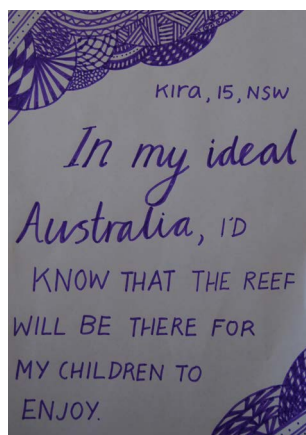 Kira, 15, NSW
In my ideal
Australia, I'D
KNOW THAT THE REEF
WILL BE THERE FOR
MY CHILDREN TO
ENJOY.